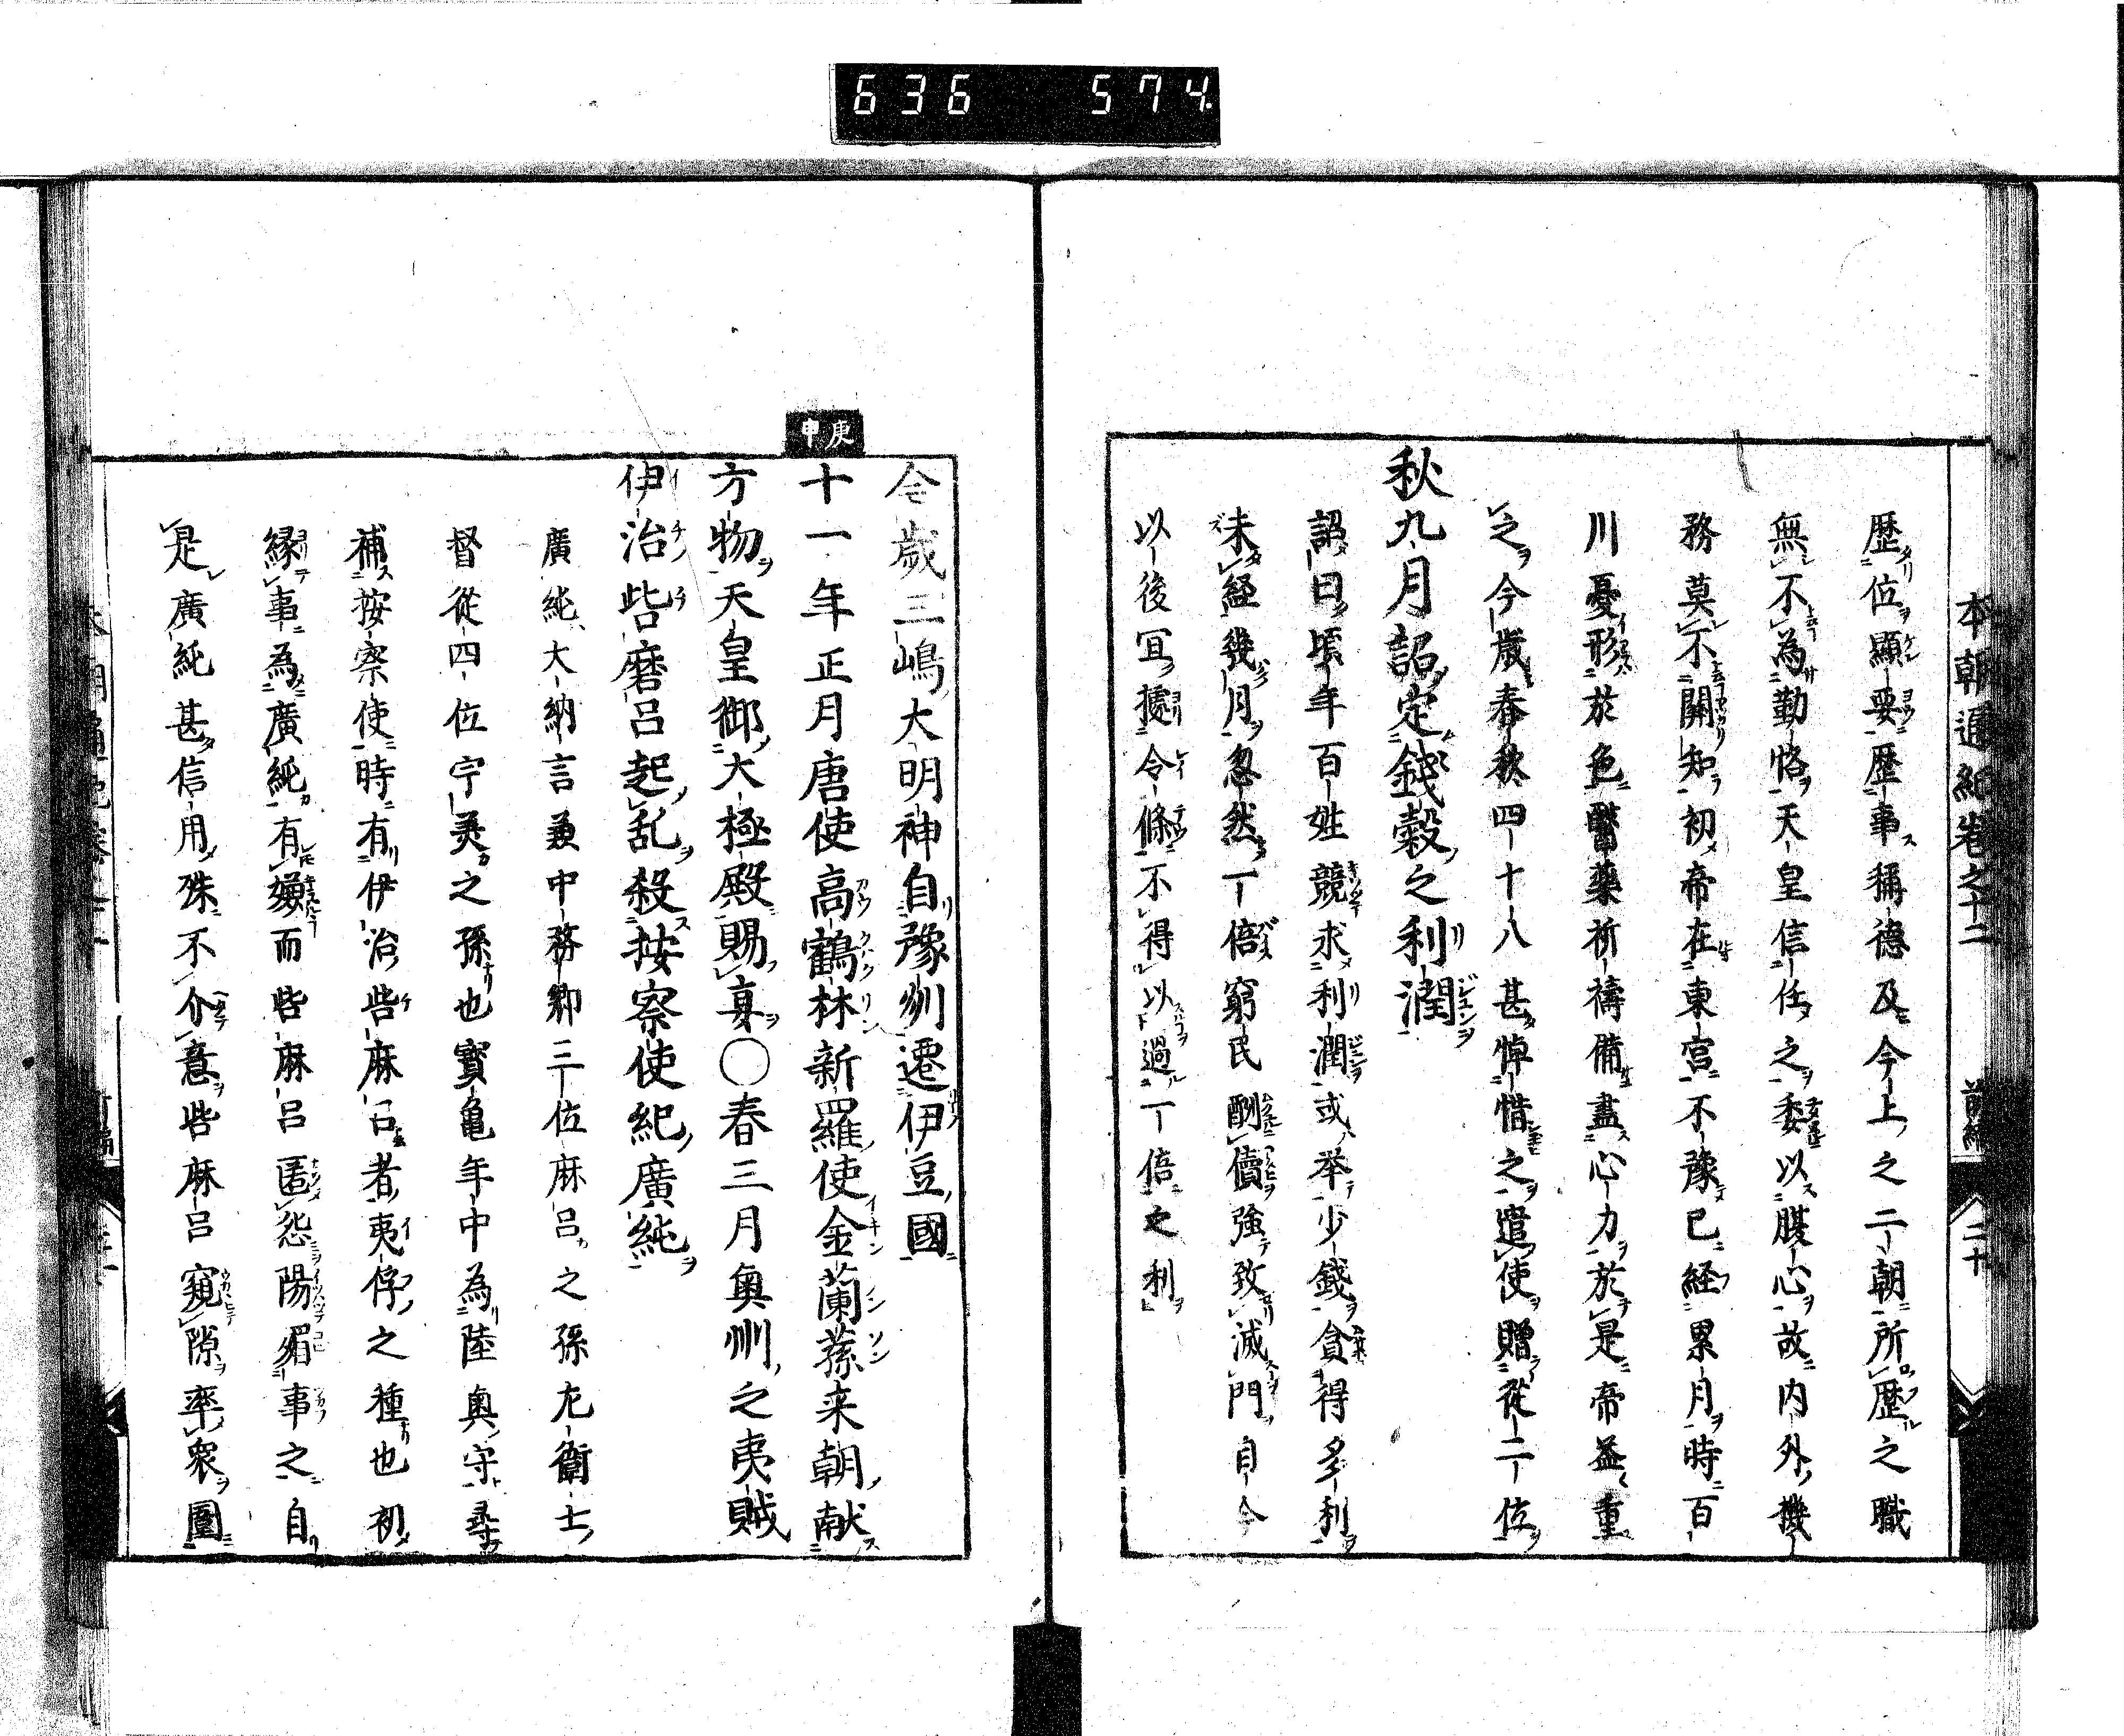 636 574
本朝通紀卷之十二 前編 二十
歴位顯要歴事稱德及今上之二朝所歴之職
無不為勤恪天皇信任之委以腹心故内外機
務莫不關知初帝在東宮不豫已経累月時百
川憂形於色醫藥祈禱備盡心力於是帝益重
之今歳春秋四十八甚悼惜之遣使贈從二位
秋九月詔定錢穀之利潤
詔曰頃年百姓競求利潤或挙少錢貪得多利
未経幾月忽然一倍窮民酬償強致滅門自今
以後冝據令條不得以過一倍之利
今歳三嶋大明神自豫州遷伊豆國
庚申
十一年正月唐使高鶴林新羅使金蘭蓀来朝献
方物天皇御大極殿賜宴〇春三月奥州之夷賊
伊治呰麿呂起乱殺按察使紀廣純
廣純大納言兼中務卿三位麻呂之孫左衛士
督從四位宇美之孫也寳亀年中為陸奥守尋
補按察使時有伊治呰麻呂者夷俘之種也初
縁事為廣純有嫌而呰麻呂匿怨陽媚事之自
是廣純甚信用殊不介意呰麻呂窺隙率衆圍